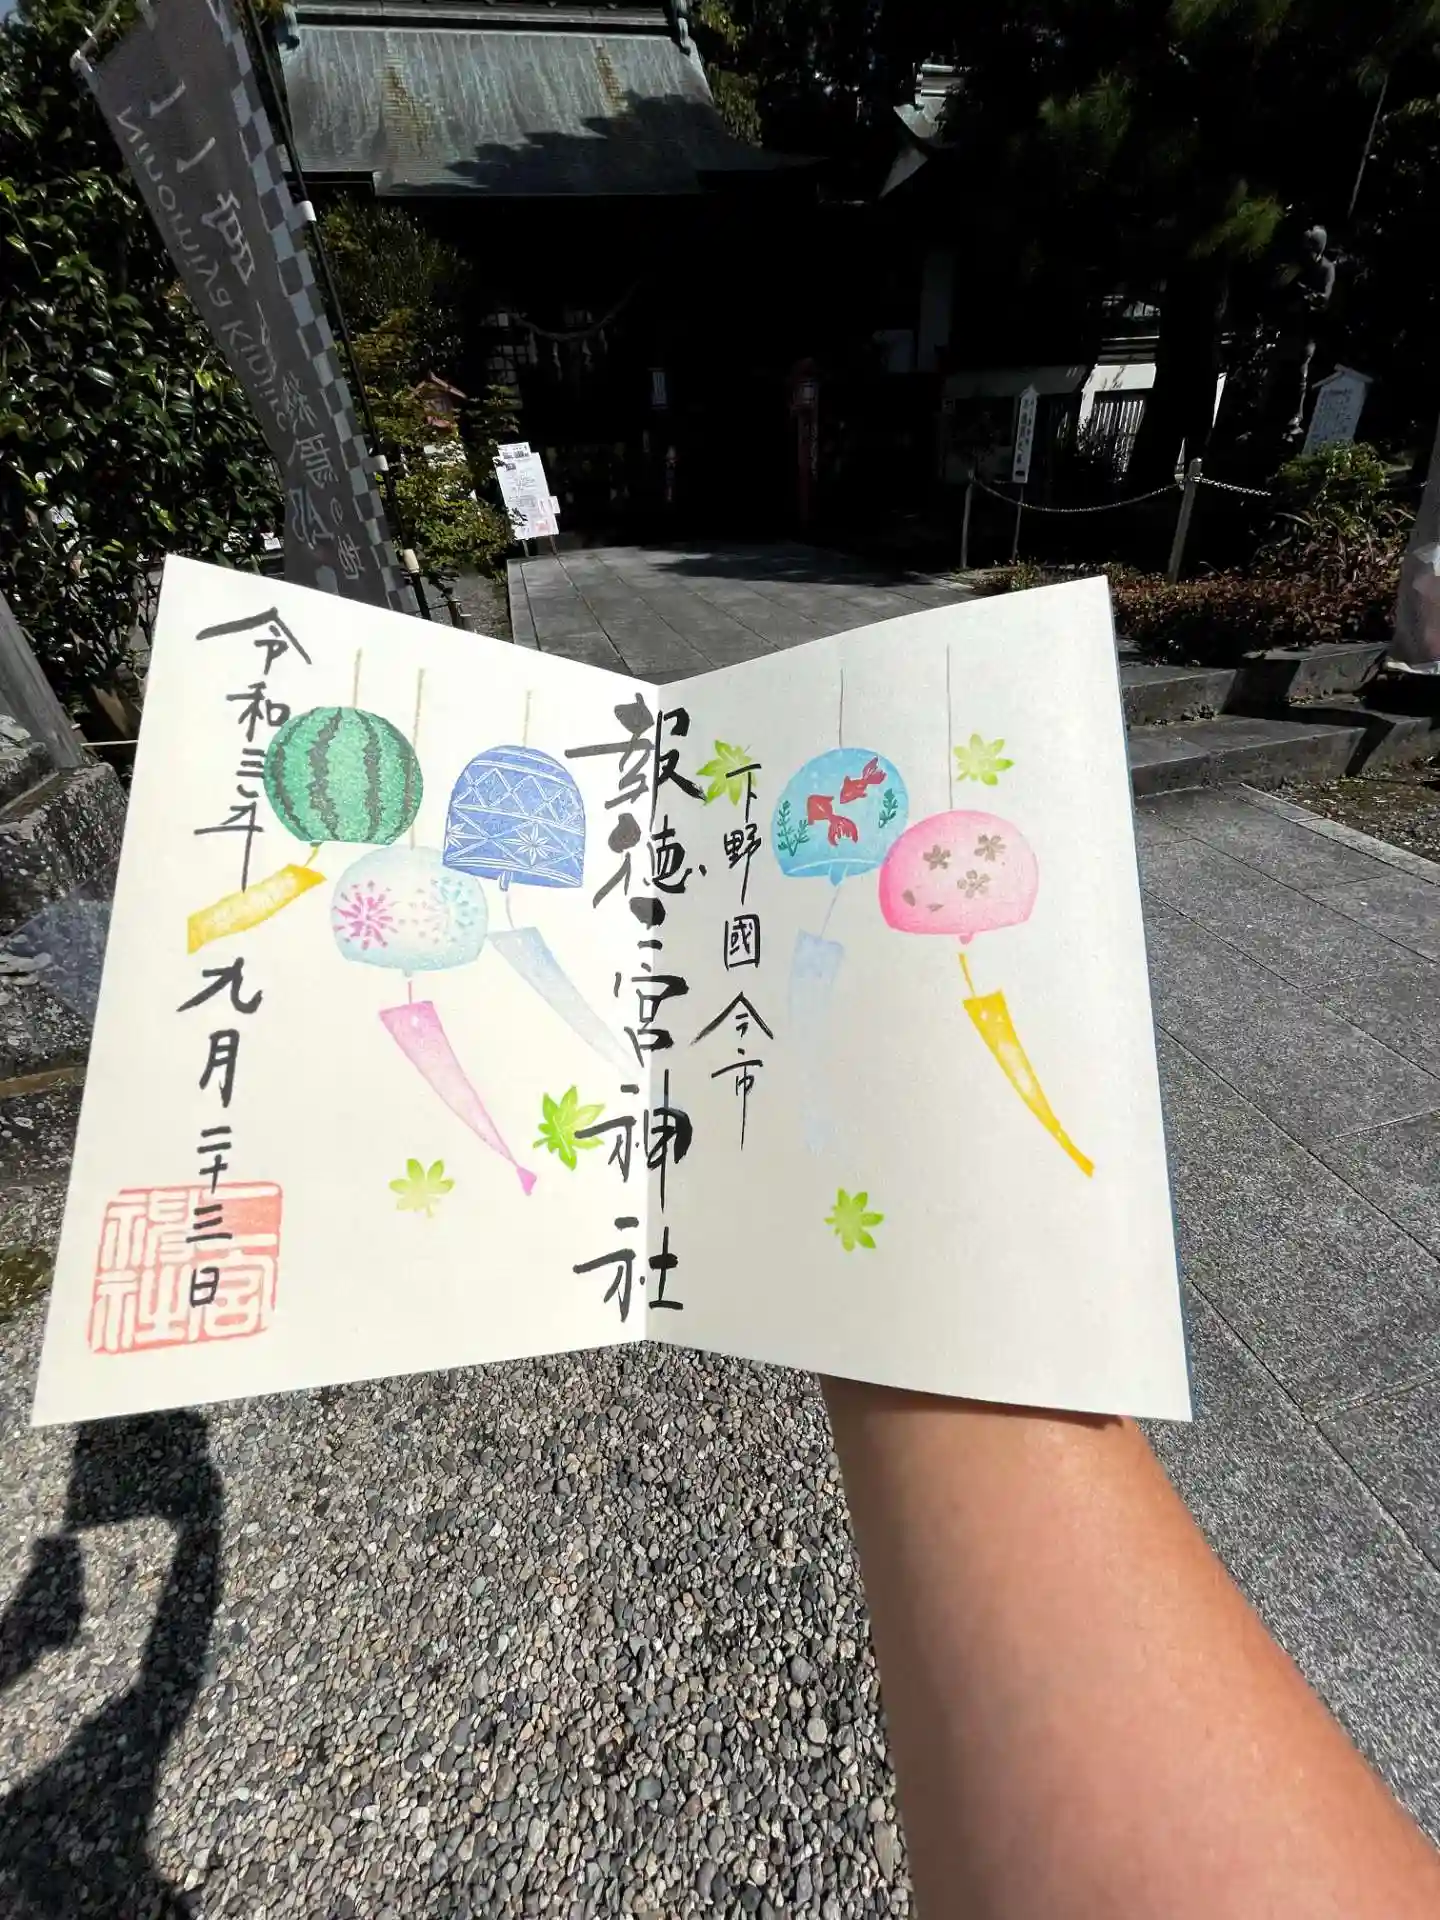 下野國 今市
報徳二宮神社
令和三年
九月二十三日
二宮
神社
NINOMIYA KINJIRO